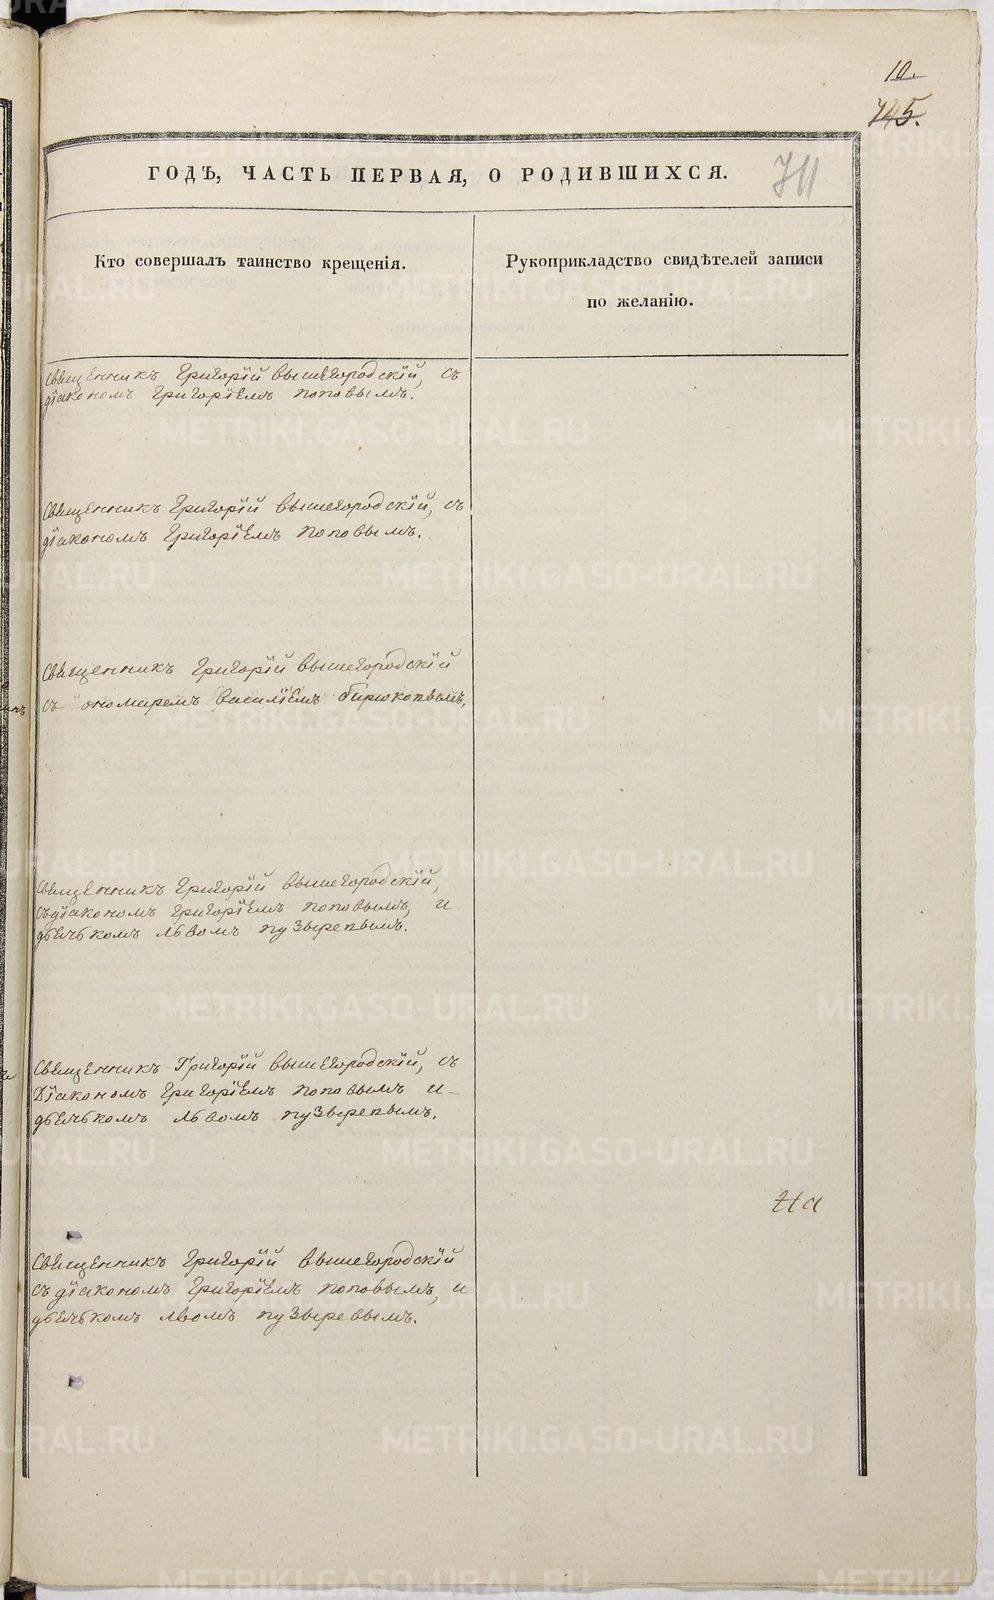 10.
745.
711
ГОДЪ, ЧАСТЬ ПЕРВАЯ, О РОДИВШИХСЯ.
Кто совершалъ таинство крещенія.
Рукоприкладство свидѣтелей записи
по желанію.
Священникъ Григорій Вышегородскій, съ
діакономъ Григоріемъ Поповымъ.
Священникъ Григорій Вышегородскій, съ
діакономъ Григоріемъ Поповымъ.
Священникъ Григорій Вышегородскій
съ пономаремъ Василіемъ Бирюковымъ,
Священникъ Григорій Вышегородскій,
съ діакономъ Григоріемъ Поповымъ, и
дьячькомъ Львомъ Пузыревымъ.
Священникъ Григорій Вышегородскій, съ
Діакономъ Григоріемъ Поповымъ и
дьячькомъ Львомъ Пузыревымъ.
На
Священникъ Григорій Вышегородскій
съ діакономъ Григоріемъ Поповымъ, и
дьячькомъ Львомъ Пузыревымъ.
METRIKI.GASO-URAL.RU